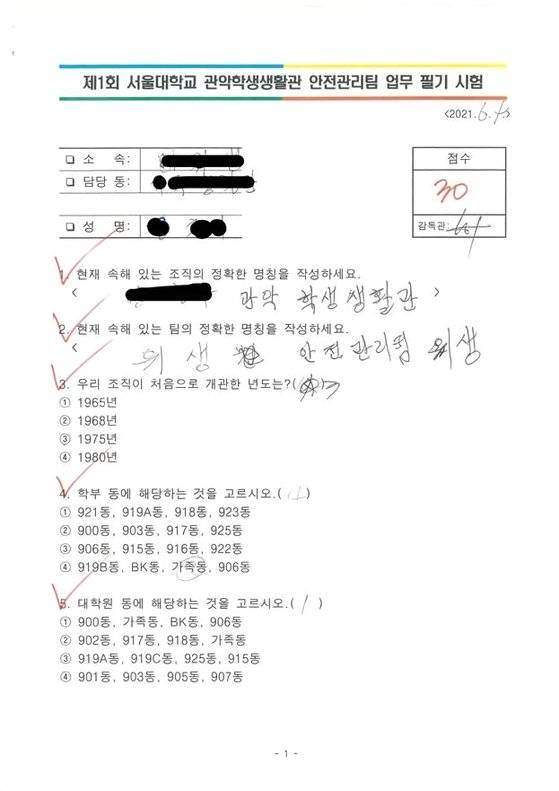 제1회 서울대학교 관악학생생활관 안전관리팀 업무 필기 시험
<2021.6.
점수
30
감독관:
❏ 소 속:
❏ 담당 동:
❏ 성 명:
1. 현재 속해 있는 조직의 정확한 명칭을 작성하세요.
< 관악 학생생활관 >
2. 현재 속해 있는 팀의 정확한 명칭을 작성하세요.
< 위생 안전관리팀 위생
3. 우리 조직이 처음으로 개관한 년도는?( )
① 1965년
② 1968년
③ 1975년
④ 1980년
4. 학부 동에 해당하는 것을 고르시오.( )
① 921동, 919A동, 918동, 923동
② 900동, 903동, 917동, 925동
③ 906동, 915동, 916동, 922동
④ 919B동, BK동, 가족동, 906동
5. 대학원 동에 해당하는 것을 고르시오.( 1 )
① 900동, 가족동, BK동, 906동
② 902동, 917동, 918동, 가족동
③ 919A동, 919C동, 925동, 915동
④ 901동, 903동, 905동, 907동
- 1 -